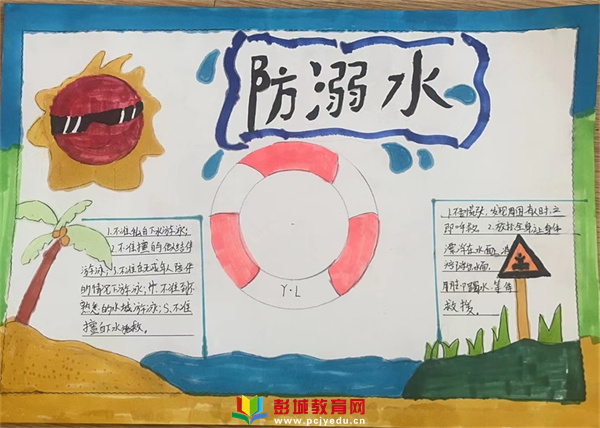 防溺水
1.不准私自下水游泳；
2.不准擅自与他人结伴
游泳；3.不准在无成年人陪伴
的情况下游泳；4.不准到不
熟悉的水域游泳；5.不准
擅自下水施救。
1.不要慌张，发现周围有人时立
即呼救；2.放松全身，让身体
漂浮在水面
水面
踢水
救援。
Y·L
彭城教育网
www.pcjyedu.cn